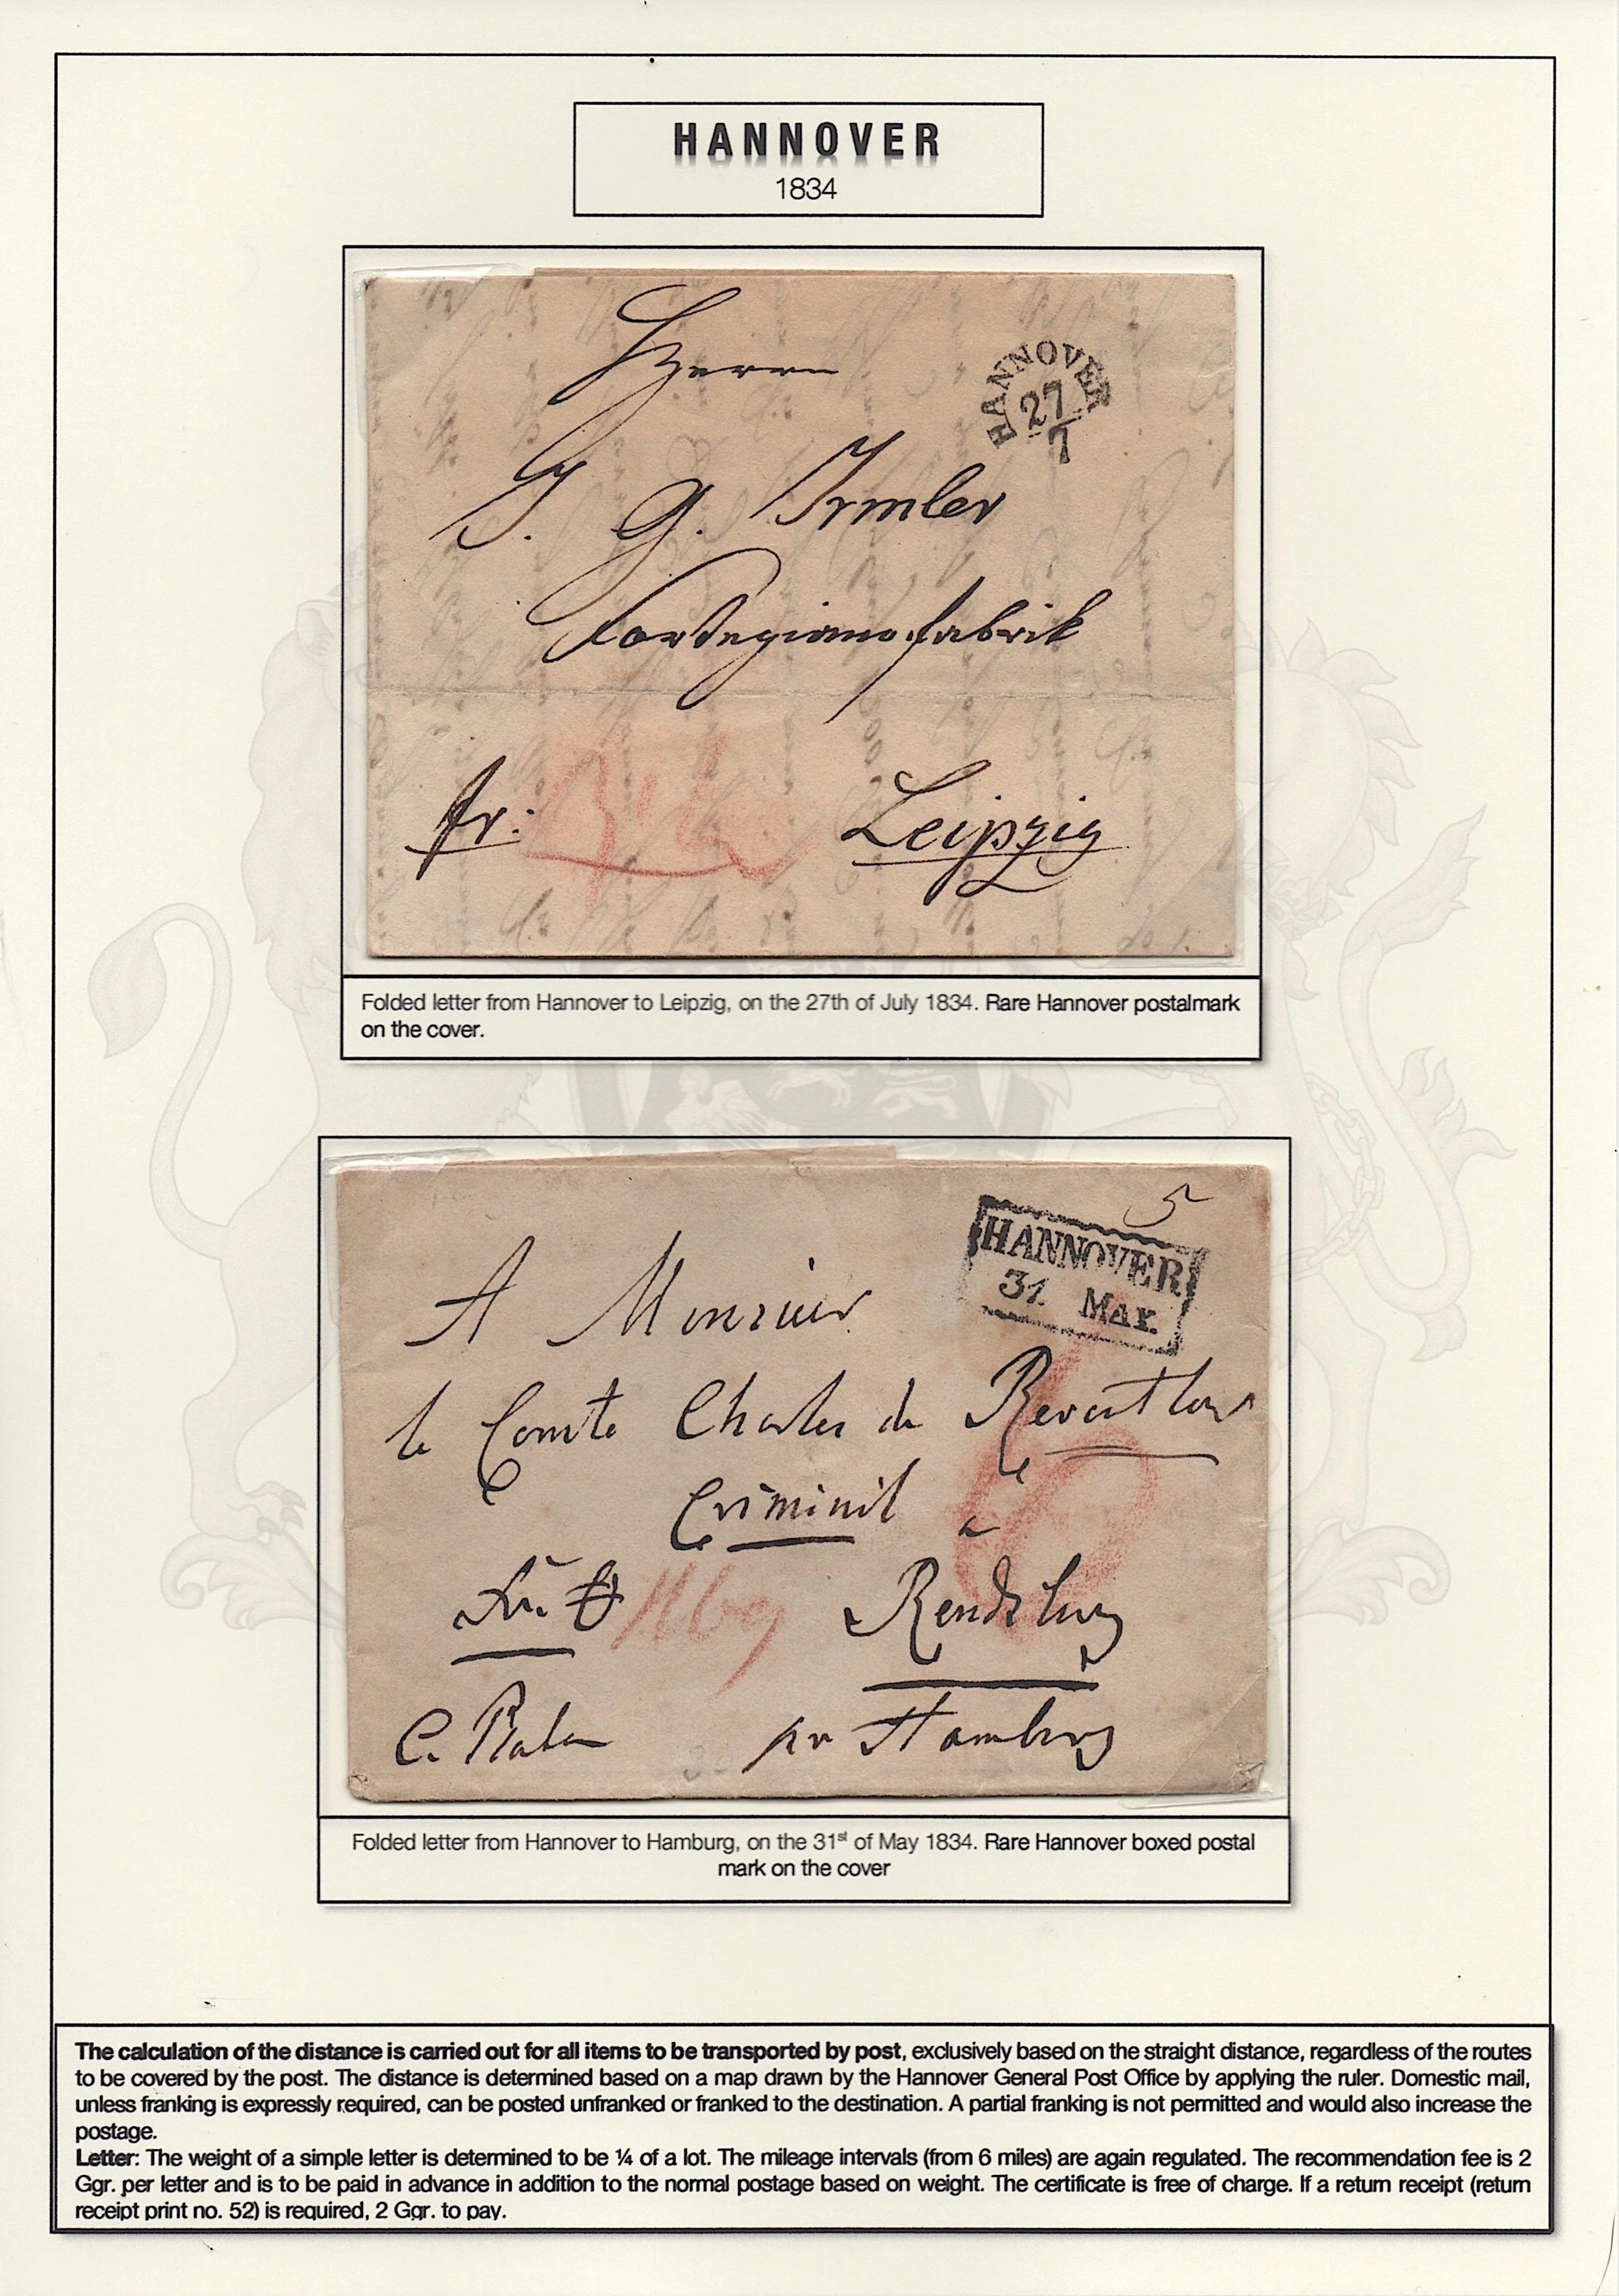 HANNOVER
1834
Herrn
HANNOVER
27
7
J. G. Irmler
Fortepianofabrik
fr:
Leipzig
Folded letter from Hannover to Leipzig, on the 27th of July 1834. Rare Hannover postalmark
on the cover.
5
HANNOVER
31 MAY.
A Monsieur
le Comte Charles de Reventlow
Criminil a
Rendsburg
6
C. pr Hamburg
Folded letter from Hannover to Hamburg, on the 31st of May 1834. Rare Hannover boxed postal
mark on the cover
The calculation of the distance is carried out for all items to be transported by post, exclusively based on the straight distance, regardless of the routes
to be covered by the post. The distance is determined based on a map drawn by the Hannover General Post Office by applying the ruler. Domestic mail,
unless franking is expressly required, can be posted unfranked or franked to the destination. A partial franking is not permitted and would also increase the
postage.
Letter: The weight of a simple letter is determined to be ¼ of a lot. The mileage intervals (from 6 miles) are again regulated. The recommendation fee is 2
Ggr. per letter and is to be paid in advance in addition to the normal postage based on weight. The certificate is free of charge. If a return receipt (return
receipt print no. 52) is required, 2 Ggr. to pay.